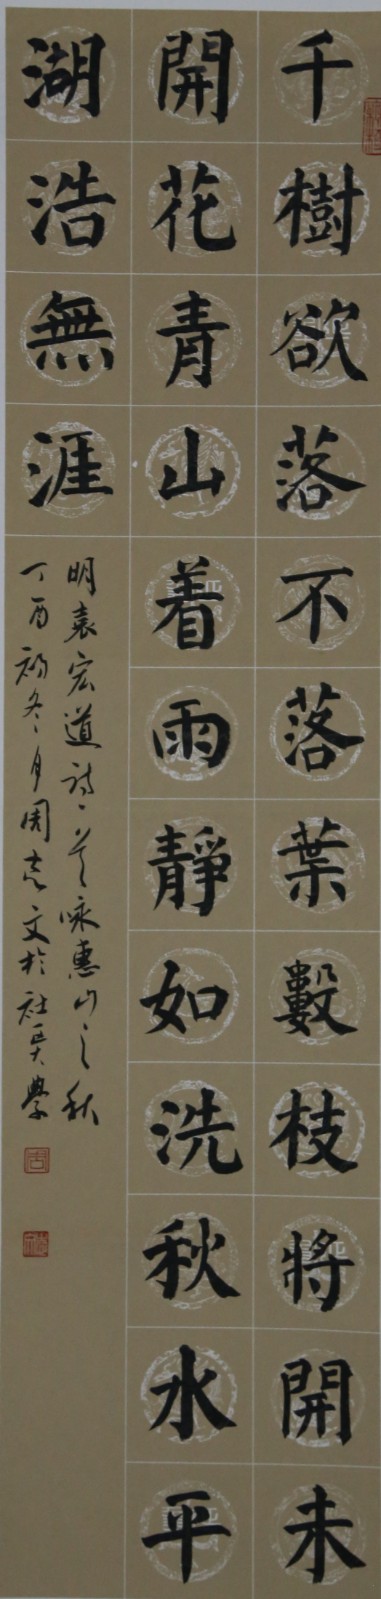 千樹欲落不落葉數枝將開未
開花青山着雨靜如洗秋水平
湖浩無涯
明袁宏道詩一首咏惠山之秋
丁酉初冬月周志文於社吴學